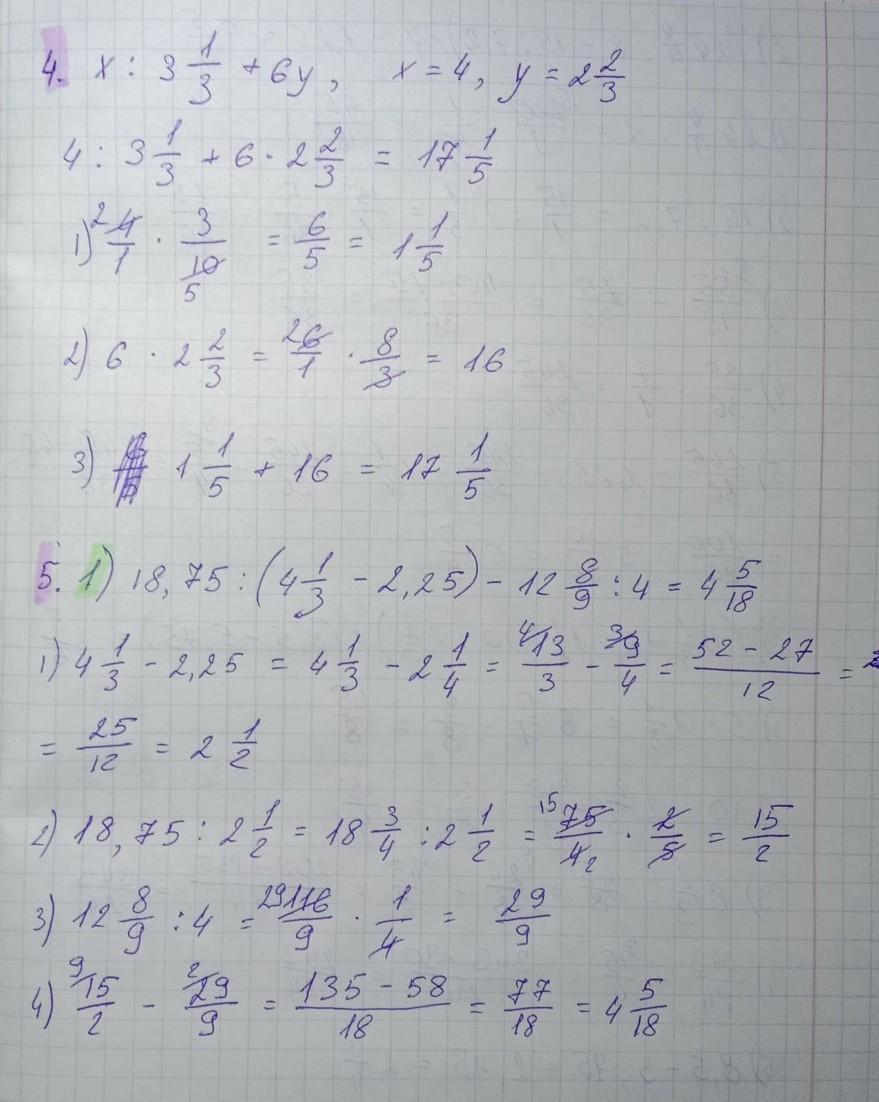 4. x : 3 1/3 + 6y, x = 4, y = 2 2/3
4 : 3 1/3 + 6 · 2 2/3 = 17 1/5
1) 2 4/1 · 3/10 5 = 6/5 = 1 1/5
2) 6 · 2 2/3 = 2 6/1 · 8/3 = 16
3) 1 1/5 + 16 = 17 1/5
5. 1) 18,75 : (4 1/3 - 2,25) - 12 8/9 : 4 = 4 5/18
1) 4 1/3 - 2,25 = 4 1/3 - 2 1/4 = 4/ 13/3 - 3/ 9/4 = 52 - 27/12 =
= 25/12 = 2 1/2
2) 18,75 : 2 1/2 = 18 3/4 : 2 1/2 = 15 75/4 2 · 2/5 = 15/2
3) 12 8/9 : 4 = 29 116/9 · 1/4 = 29/9
4) 9/ 15/2 - 2/ 29/9 = 135 - 58/18 = 77/18 = 4 5/18